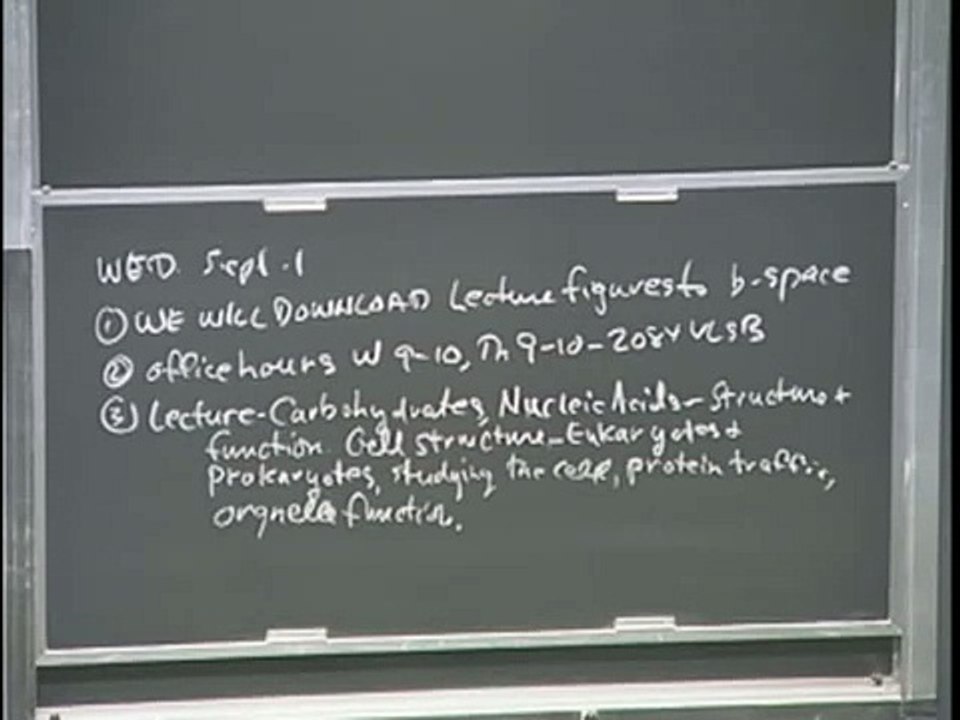 WED. Sept. 1
① WE WILL DOWNLOAD Lecture figures to b-space
② office hours W 9-10, Th 9-10 - 2084 VLSB
③ Lecture-Carbohydrates, Nucleic Acids - Structure +
function. Cell structure - Eukaryotes +
Prokaryotes, studying the cell, protein traffic,
orgnelle function.